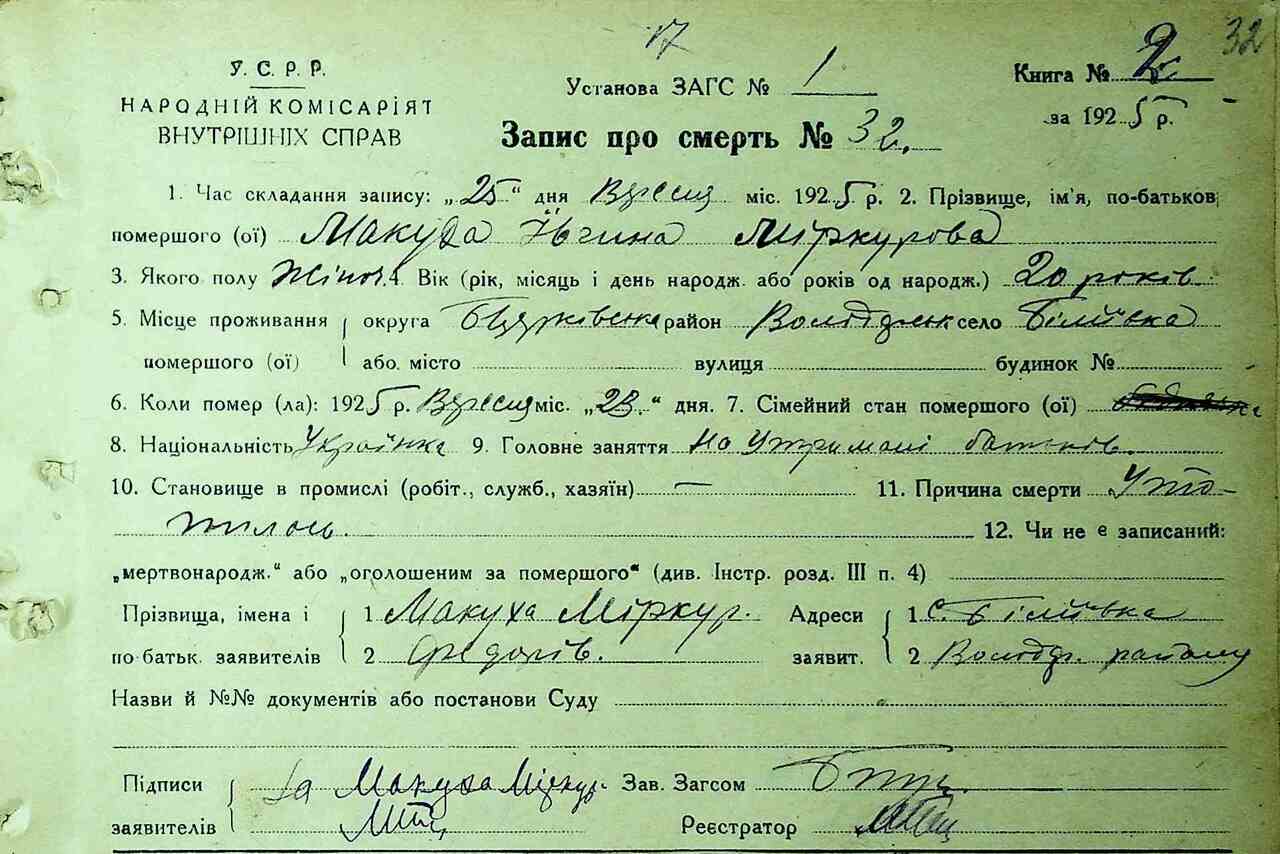 17
32
У.С.Р.Р.
НАРОДНІЙ КОМІСАРІЯТ
ВНУТРІШНІХ СПРАВ
Установа ЗАГС № 1
Книга № 2
за 1925 р.
Запис про смерть № 32.
1. Час складання запису: „25“ дня Вересня міс. 1925 р. 2. Прізвище, ім'я, по-батькові
помершого (ої) Макуха Міркурова
3. Якого полу Жіноч. 4. Вік (рік, місяць і день народж. або років од народж.) 20 років.
5. Місце проживання округа Бцерківська район Володарськ село Білиївка
помершого (ої) або місто вулиця будинок №
6. Коли помер (ла): 1925 р. Вересня міс. „23“ дня. 7. Сімейний стан помершого (ої)
8. Національність Українка 9. Головне заняття На Утримані батьків.
10. Становище в промислі (робіт., служб., хазяїн) — 11. Причина смерти Уто-
пилась. 12. Чи не є записаний:
„мертвонародж.“ або „оголошеним за помершого“ (див. Інстр. розд. III п. 4)
Прізвища, імена і 1 Макуха Міркур. Адреси 1 с. Білиївка
по батьк. заявителів 2 Федорів. заявит. 2 Володар. району
Назви й №№ документів або постанови Суду
Підписи За Макуха Міркур. Зав. Загсом
заявителів Реєстратор